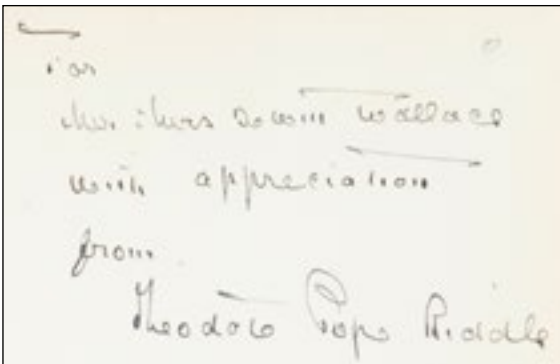 For
Mr. & Mrs Edwin Wallace
with appreciation
from
Theodate Pope Riddle